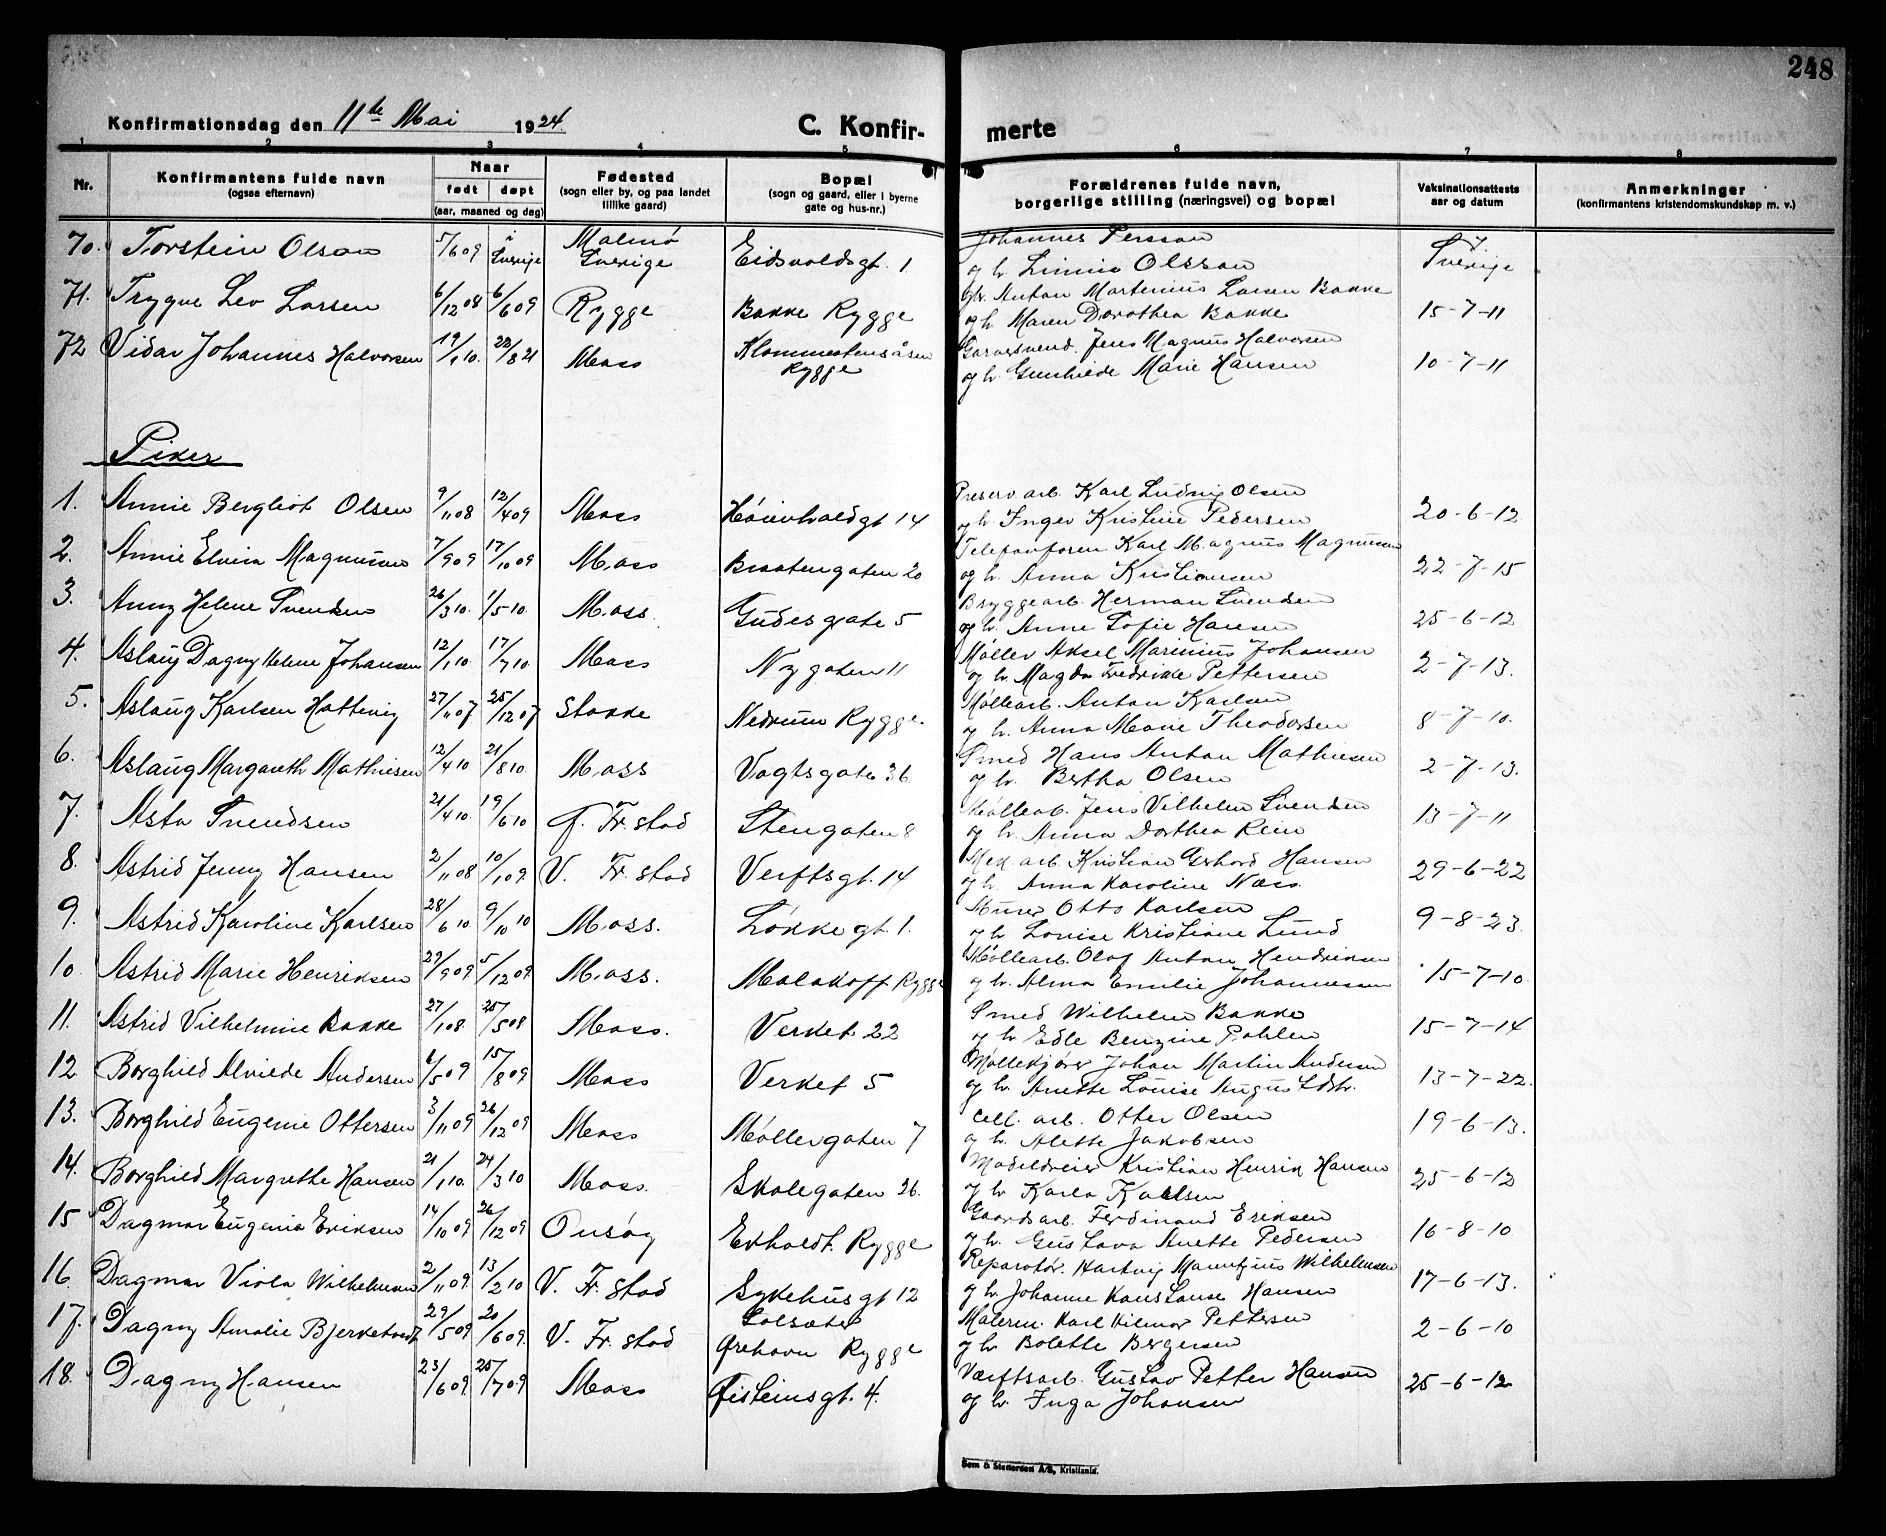 248
Konfirmationsdag den 11te Mai 1924 C. Konfir- merte
1 2 3 4 5 6 7 8
Nr. Konfirmantens fulde navn (ogsaa efternavn) Naar født døpt (aar, maaned og dag) Fødested (sogn eller by, og paa landet tillike gaard) Bopæl (sogn og gaard, eller i byerne gate og hus-nr.) Forældrenes fulde navn, borgerlige stilling (næringsvei) og bopæl Vaksinationsattests aar og datum Anmerkninger (konfirmantens kristendomskundskap m. v.)
70. Torstein Olson 5/6 09 i Sverige Malmø Sverige Eidsvoldsgt. 1 Johannes Persson
og h. Linnia Olsson Sverige
71. Trygve Lev Larsen 6/12 08 6/6 09 Rygge Bakke Rygge Gbr. Anton Martinius Larsen Bakke
og h. Maren Dorothea Bakke 15-7-11
72 Vidar Johannes Halvorsen 19/1 10. 22/8 21 Moss Klommestensåsen Rygge Garversvend. Jens Magnus Halvorsen
og h. Gunhilde Marie Hansen 10-7-11
Piker
1. Annie Bergliot Olsen 9/11 08 12/4 09 Moss Høienhaldgt 14 Preserv. arb. Karl Ludvig Olsen
og h. Inger Kristine Pedersen 20-6-12
2. Annie Elvira Magnussen 7/9 09 17/10 09 Moss Braatengaten 20 Telefonforen Karl Magnus Magnussen
og h. Anna Kristiansen 22-7-15
3. Anny Helene Svendsen 26/3 10. 1/5 10. Moss. Gudesgate 5 Bryggearb. Herman Svendsen
og h. Anne Sofie Hansen 25-6-12
4. Aslaug Dagny Helene Johansen 12/1 10 17/7 10 Moss Nygaten 11 Møller Aksel Marinius Johansen
og h. Magda Fredrikke Pettersen 2-7-13.
5. Aslaug Karlsen Hattevig 27/11 07 25/12 07 Stokke Nedrum Rygge. Møllearb. Anton Karlsen
og h. Anna Marie Theodorsen 8-7-10.
6. Aslaug Margareth Mathiesen 12/4 10 21/8 10 Moss Vogtsgaten 36 Smed Hans Anton Mathiesen
og h. Bertha Olsen 2-7-13.
7. Asta Svendsen 21/4 10. 19/6 10 G. Fr.stad Stengaten 8 Møllearb. Jens Vilhelm Svendsen
og h. Anna Dorthea Rein 13-7-11
8. Astrid Jenny Hansen 2/11 08 10/1 09. V. Fr.stad Verftsgt. 14 Mek. arb. Kristian Gerhard Hansen
og h. Anna Karoline Næss. 29-6-22
9. Astrid Karoline Karlsen 28/6 10 9/10 10 Moss. Løkkegt. 1. Murer Otto Karlsen
og h. Louise Kristiane Lund 9-8-23.
10. Astrid Marie Henriksen 29/9 09 5/12 09 Moss. Malakoff Rygge Møllearb. Olaf Anton Hendriksen
og h. Alma Emilie Johannessen 15-7-10.
11. Astrid Vilhelmine Bakke 27/1 08. 25/5 08 Moss. Verket 22 Smed Wilhelm Bakke
og h. Edle Benzine Pohlen 15-7-14
12 Borghild Alvilde Andersen 6/5 09 15/8 09 Moss Verket 5 Møllekjører Johan Martin Andersen
og h. Anette Louise Augustdtr. 13-7-22.
13. Borghild Eugenie Ottersen 3/11 09 26/12 09 Moss Møllergaten 7 Cell. arb. Otter Olsen
og h. Alette Jakobsen 19-6-13.
14. Borghild Margrethe Hansen 21/1 10. 24/3 10 Moss. Skolegaten 26. Kristian Henrik Hansen
og h. Karla Karlsen 25-6-12
15 Dagmar Eugenia Eriksen 14/10 09 26/12 09 Onsøy Ekholdt. Rygge Gaardsarb. Ferdinand Eriksen
og h. Gustava Anette Pedersen 16-8-10
16 Dagmar Viola Wilhelmsen 2/11 09 13/2 10 V. Fr.stad Sykehusgt 12 Reparatør. Hartvig Mauritzius Wilhelmsen
og h. Johanne Konstanse Hansen 17-6-13.
17. Dagny Amalie Bjerketvedt 29/5 09 20/6 09. V. Fr.stad Solsæter Ørehavn Rygge Malerm. Karl Hilmar Pettersen
og h. Bolette Bergersen 2-6-10
18. Dagny Hansen 23/6 09 25/7 09 Moss Øisteinsgt. 4. Værftsarb. Gustav Petter Hansen
og h. Inga Johansen 25-6-12
Sem & Stenersen A/S, Kristiania.